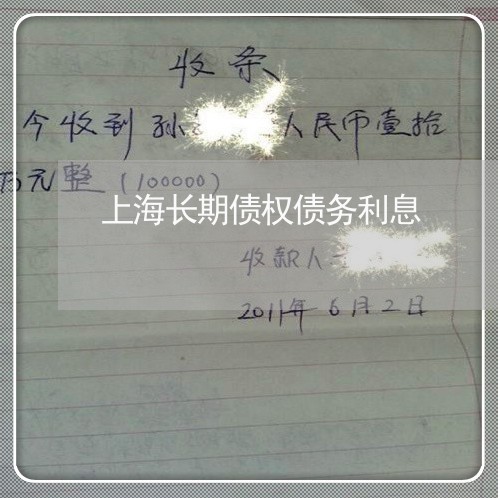 收条
今收到孙 人民币壹拾
万元整（100000）
上海长期债权债务利息
收款人
2011年6月2日